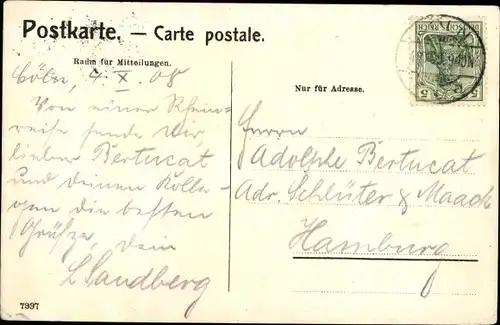 Postkarte. — Carte postale.
Raum für Mitteilungen.
Nur für Adresse.
Cöln, 4. X. 08
Von einer Rhein-
reise sende dir,
lieber Bertucat
und deinen Kolle-
gen die besten
Grüße, dein
L Sandberg
Herrn
Adolphe Bertucat
Adr. Schlüter & Maack
Hamburg
7997
5 5